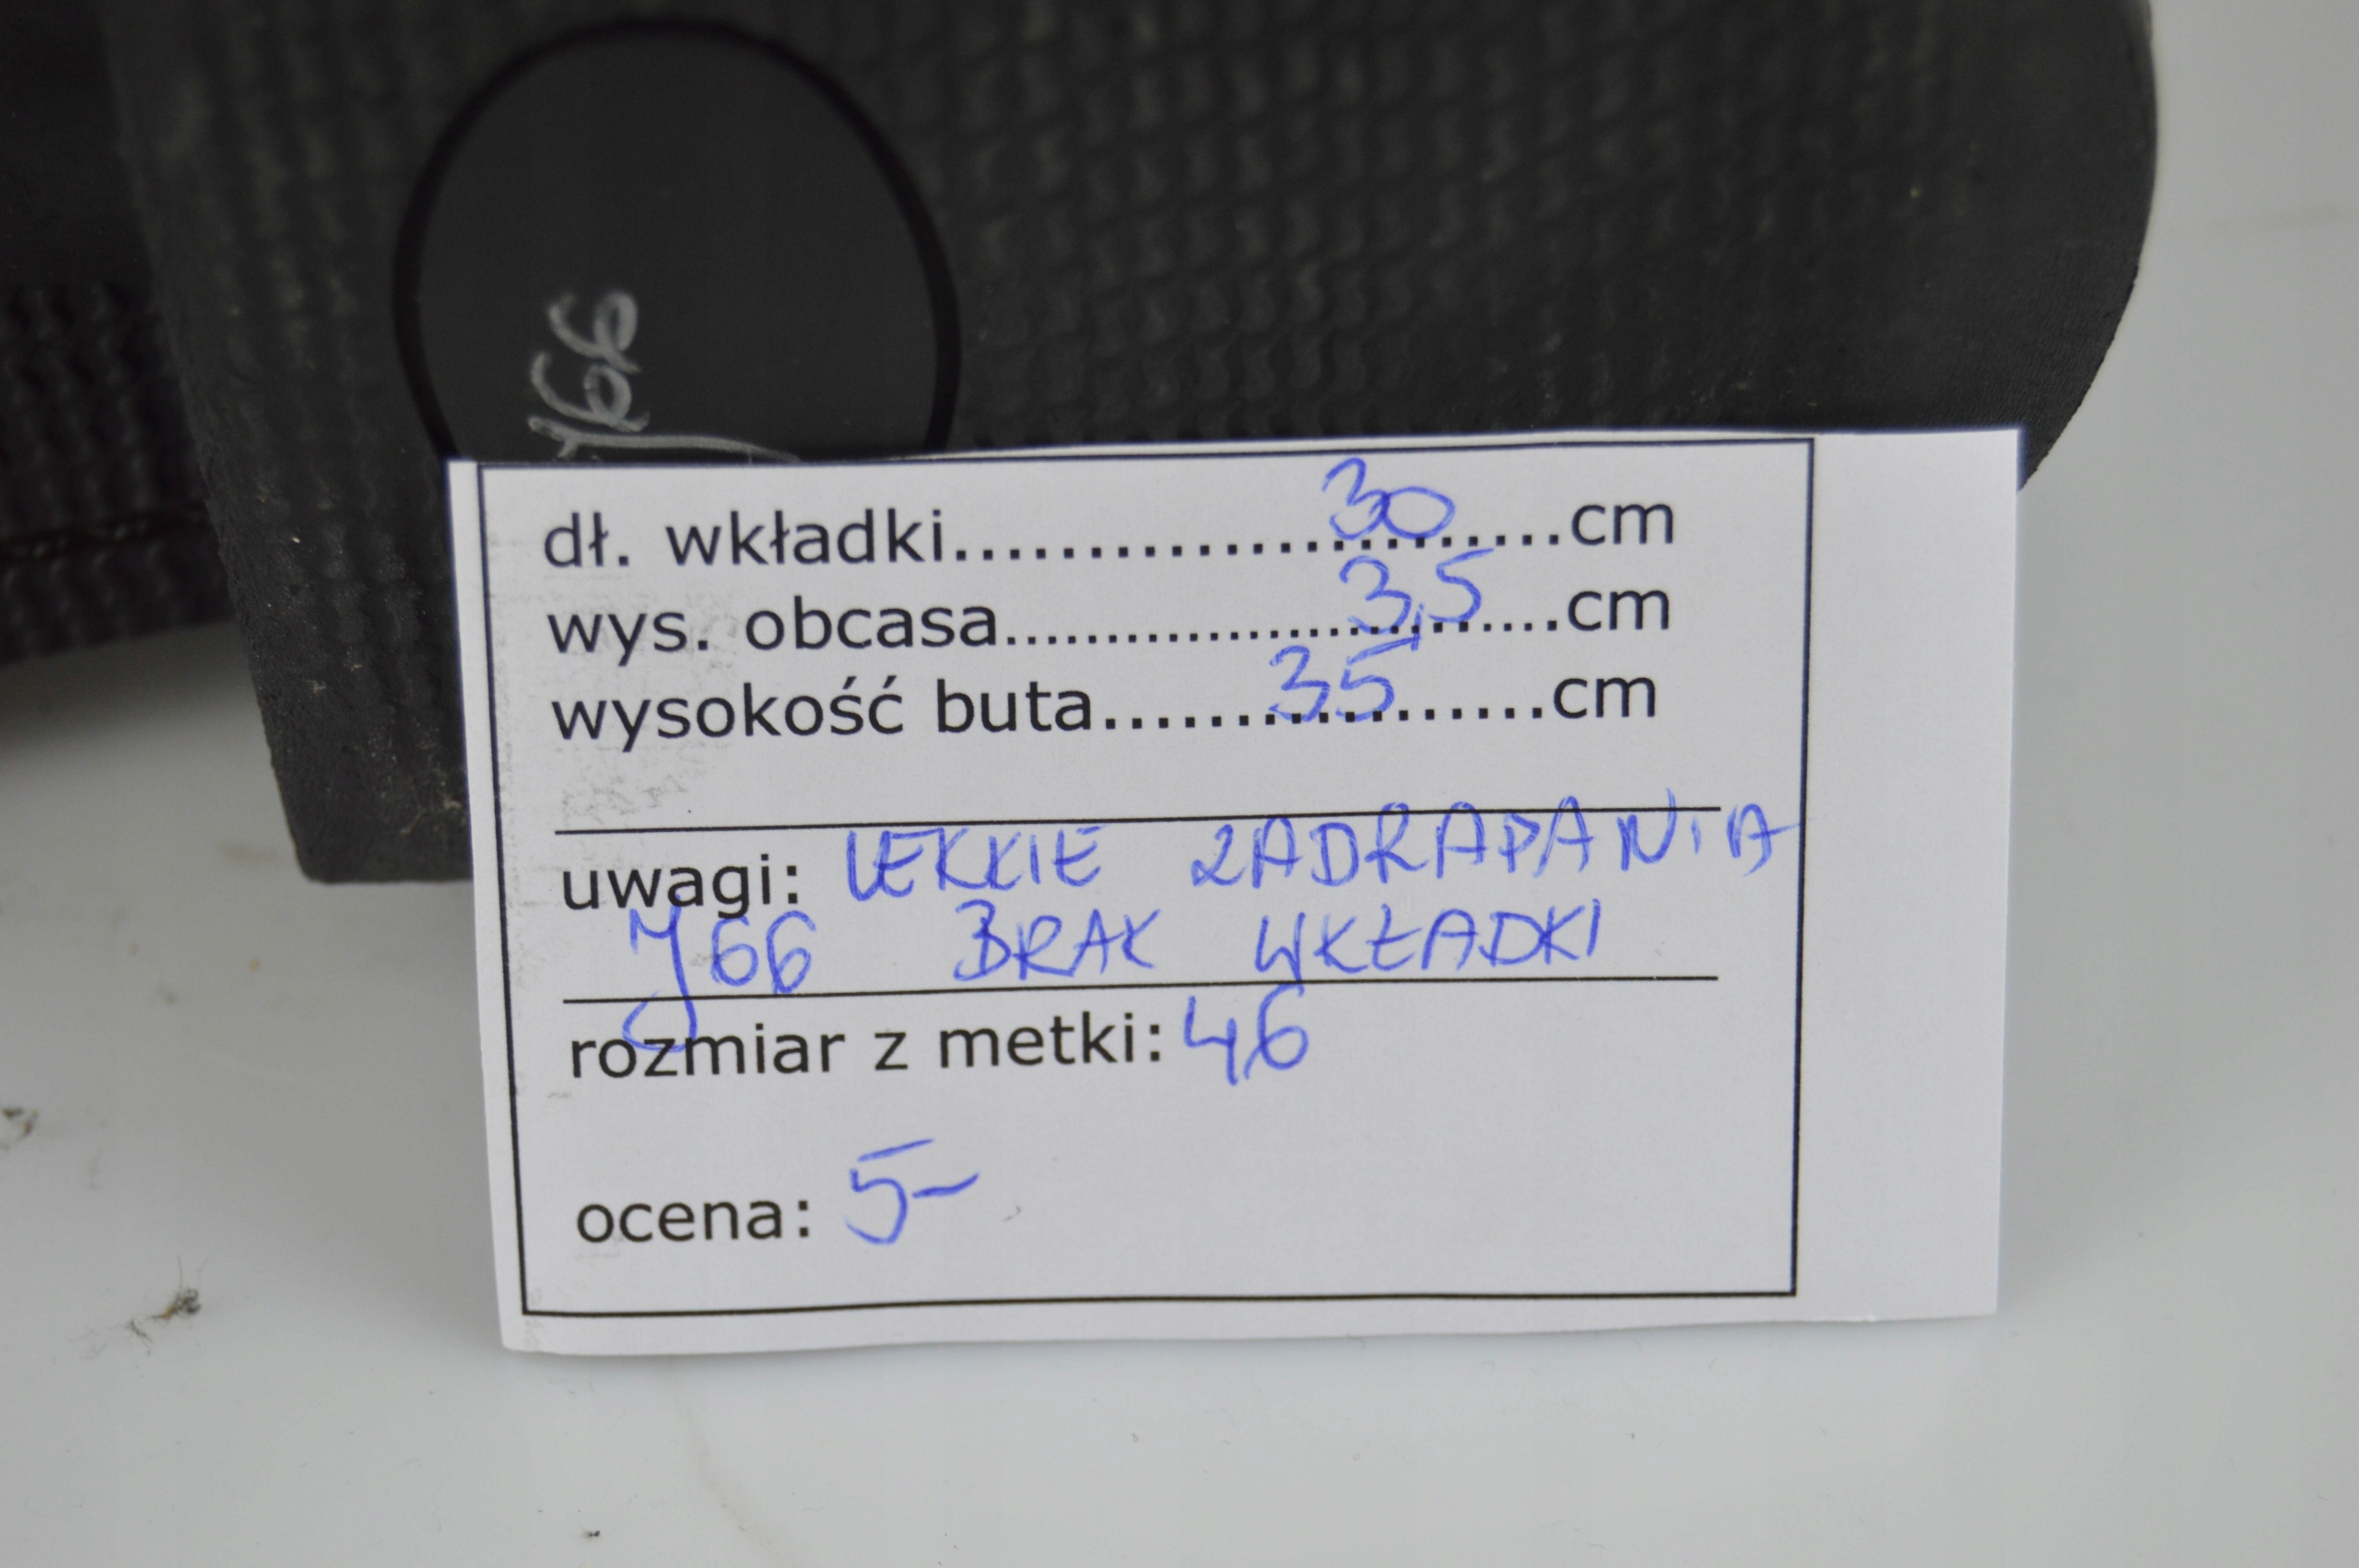 y66
dł. wkładki........30........cm
wys. obcasa........3,5........cm
wysokość buta........35........cm
uwagi: LEKKIE ZADRAPANIA
y66 BRAK WKŁADKI
rozmiar z metki: 46
ocena: 5-